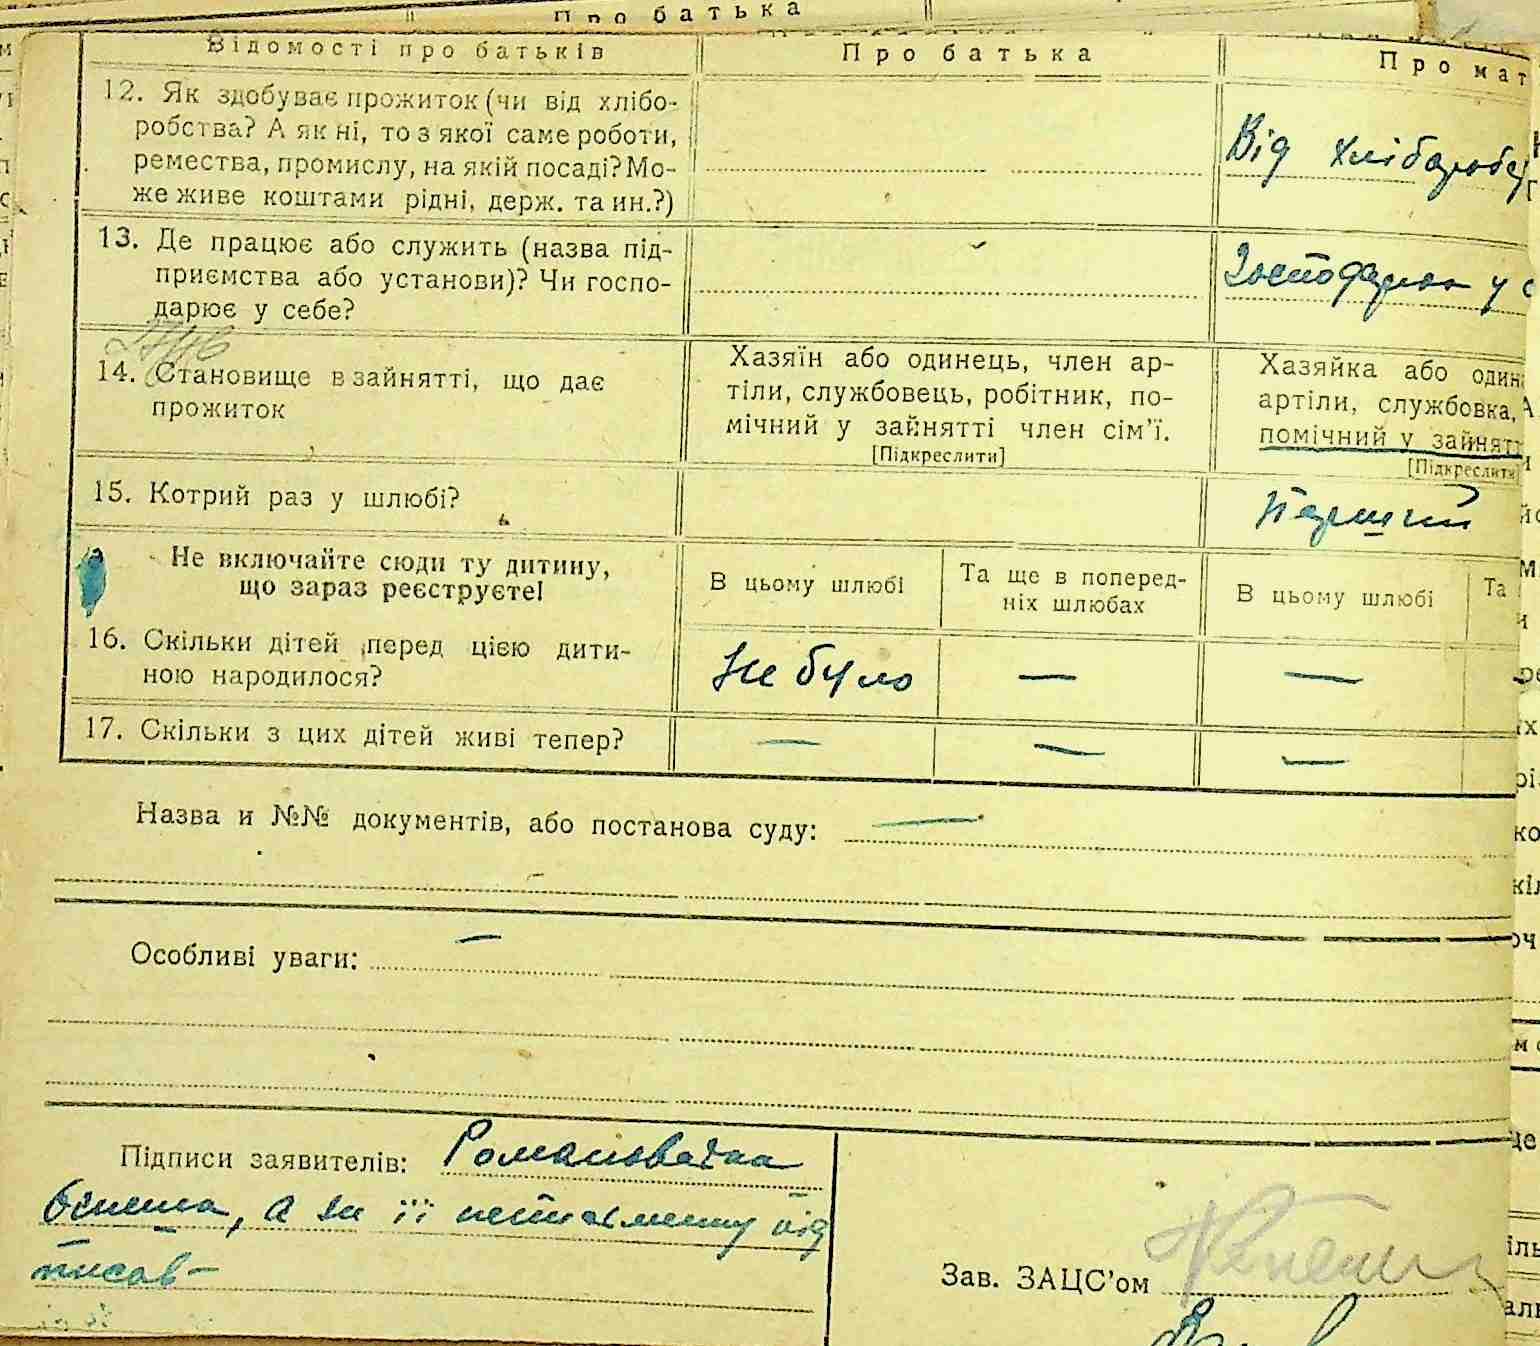 Про батька
Відомості про батьків
Про батька
Про мат
12. Як здобуває прожиток (чи від хлібо-
робства? А як ні, то з якої саме роботи,
ремества, промислу, на якій посаді? Мо-
же живе коштами рідні, держ. та ин.?)
Від хліборобс
13. Де працює або служить (назва під-
приємства або установи)? Чи госпо-
дарює у себе?
Господарює у с
14. Становище в зайнятті, що дає
прожиток
Хазяїн або одинець, член ар-
тіли, службовець, робітник, по-
мічний у зайнятті член сім'ї.
[Підкреслити]
Хазяйка або один
артіли, службовка,
помічний у занят
[Підкреслити]
15. Котрий раз у шлюбі?
Перший
Не включайте сюди ту дитину,
що зараз реєструєте!
В цьому шлюбі
Та ще в поперед-
ніх шлюбах
В цьому шлюбі
Та
16. Скільки дітей перед цією дити-
ною народилося?
Не було — —
17. Скільки з цих дітей живі тепер?
— — —
Назва и №№ документів, або постанова суду: —
Особливі уваги: —
Підписи заявителів: Романовська
а за її неписьменну під
писав
Зав. ЗАЦС'ом